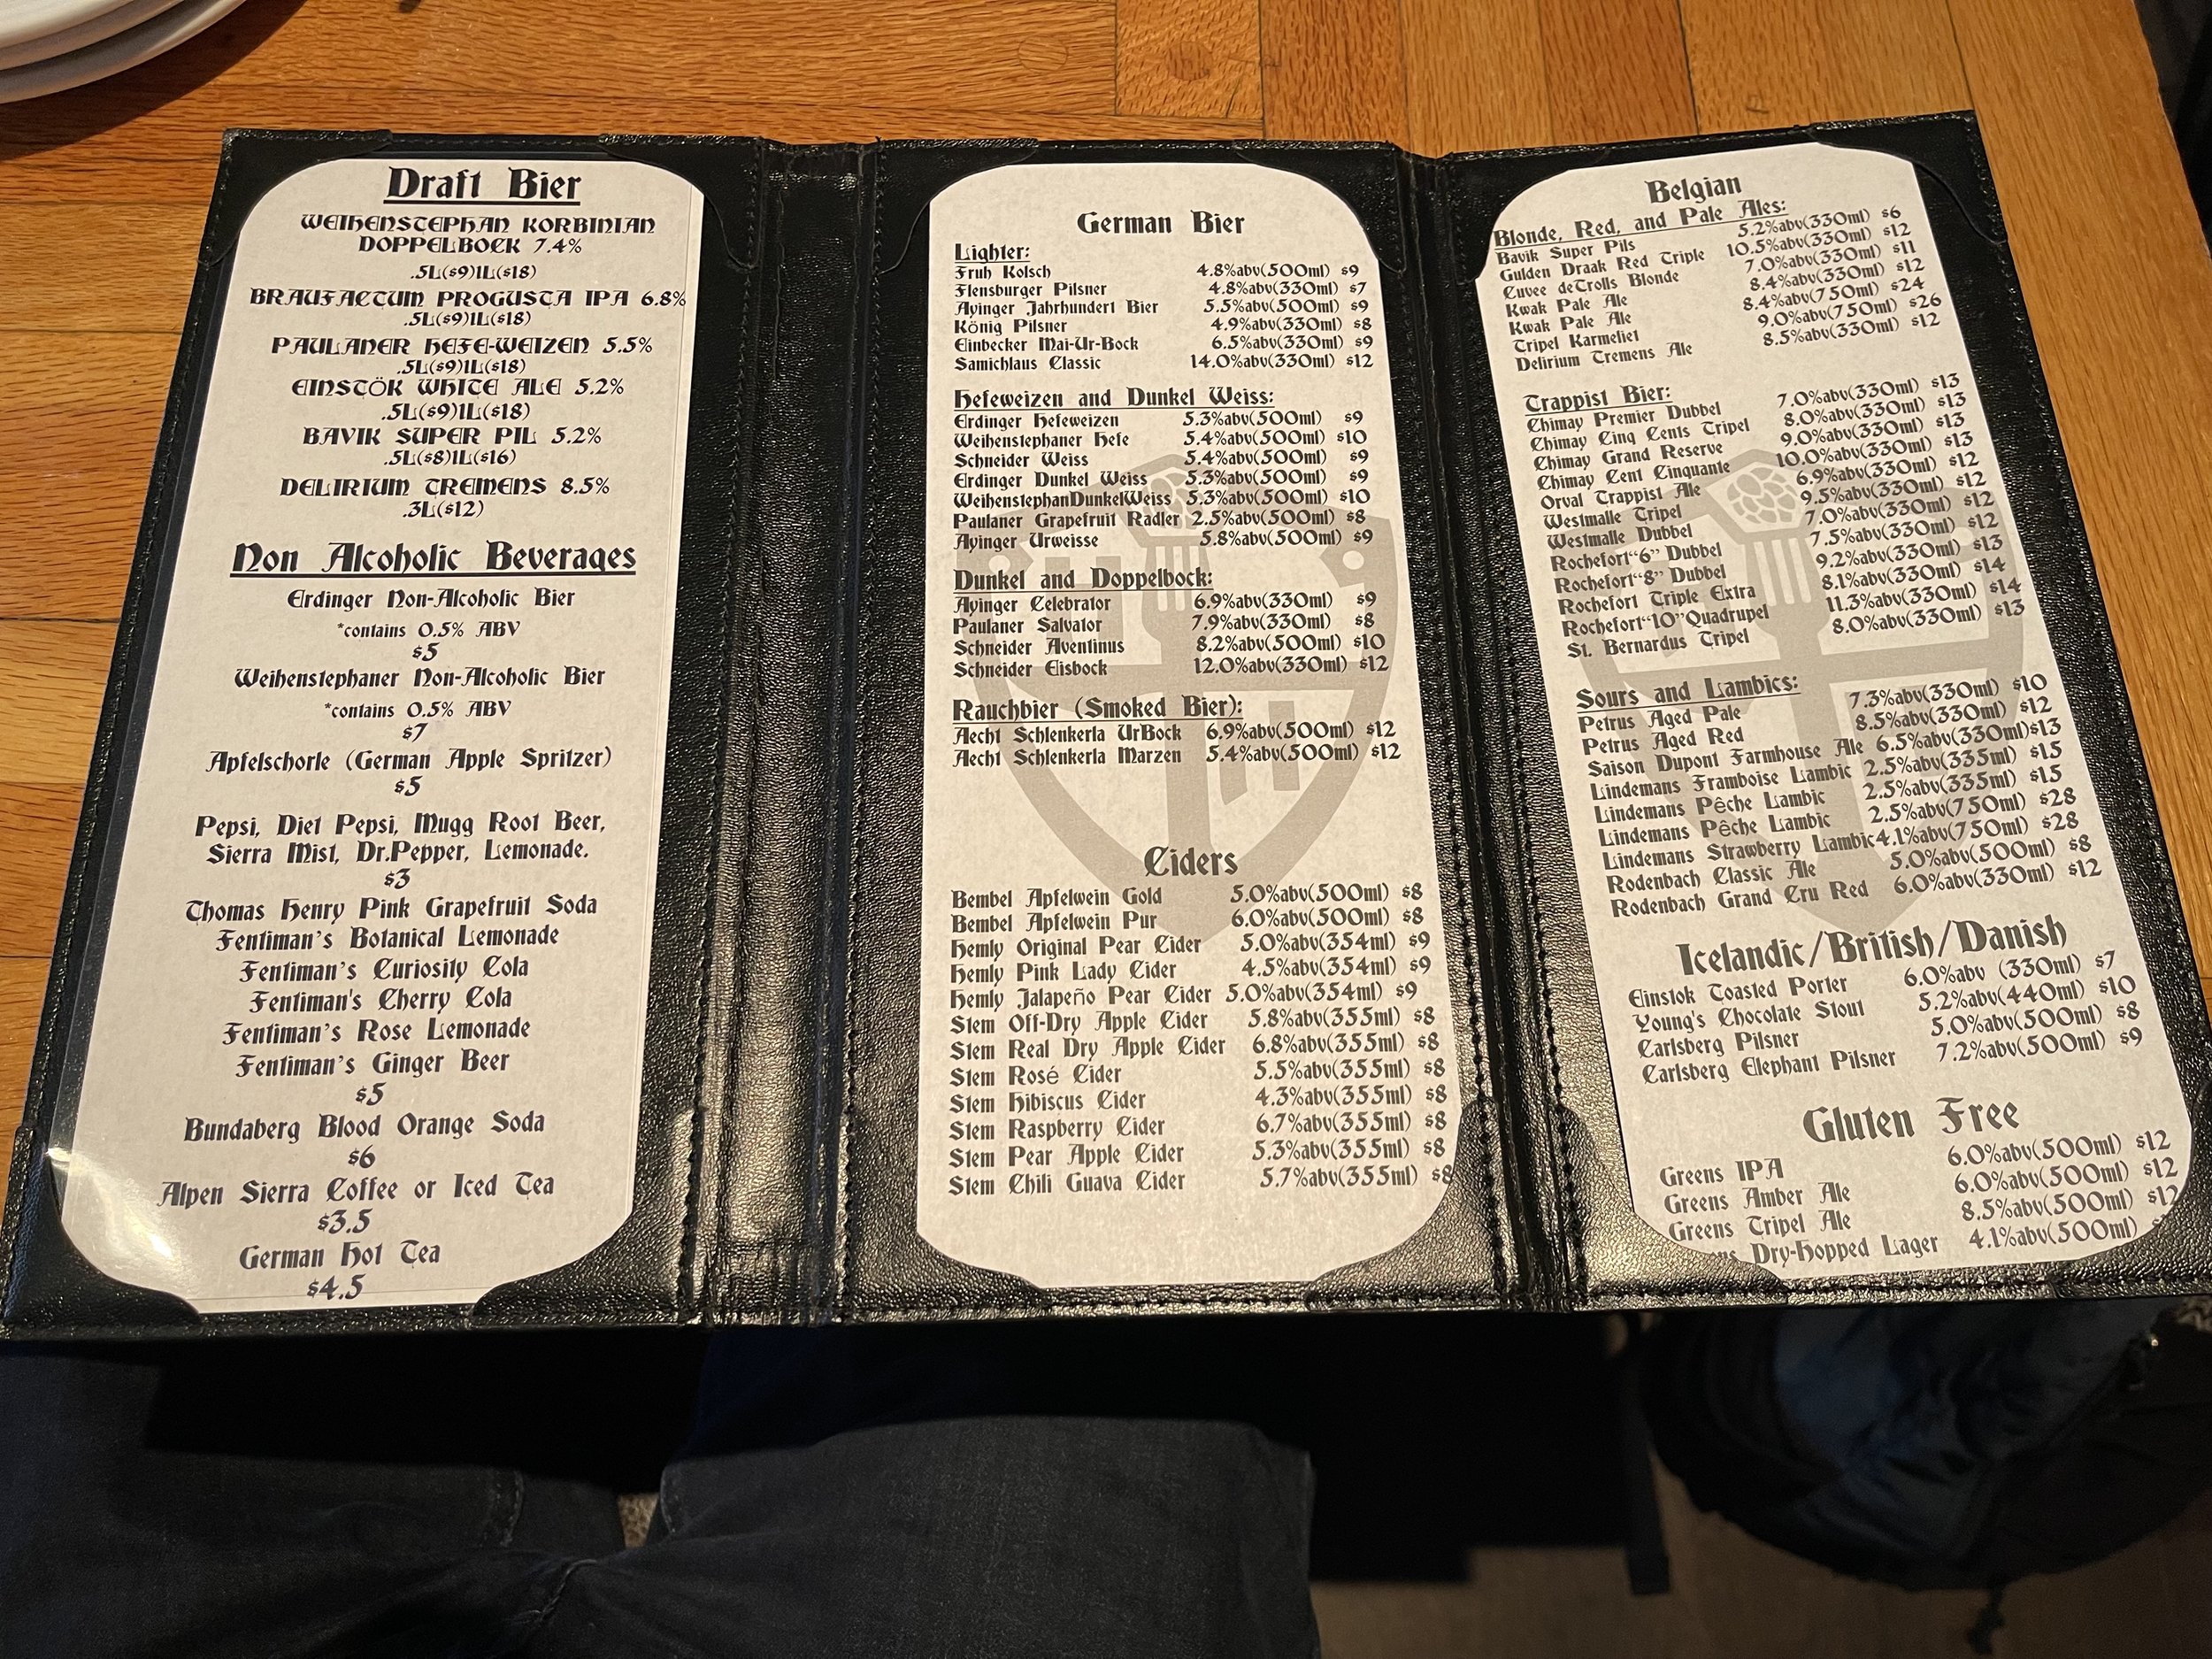 Draft Bier
WEIHENSTEPHAN KORBINIAN
DOPPELBOCK 7.4%
.5L($9)1L($18)
BRAUFACTUM PROGUSTA IPA 6.8%
.5L($9)1L($18)
PAULANER HEFE-WEIZEN 5.5%
.5L($9)1L($18)
EINSTÖK WHITE ALE 5.2%
.5L($9)1L($18)
BAVIK SUPER PIL 5.2%
.5L($8)1L($16)
DELIRIUM TREMENS 8.5%
.3L($12)
Non Alcoholic Beverages
Erdinger Non-Alcoholic Bier
*contains 0.5% ABV
$5
Weihenstephaner Non-Alcoholic Bier
*contains 0.5% ABV
$7
Apfelschorle (German Apple Spritzer)
$5
Pepsi, Diet Pepsi, Mugg Root Beer,
Sierra Mist, Dr.Pepper, Lemonade.
$3
Thomas Henry Pink Grapefruit Soda
Fentiman's Botanical Lemonade
Fentiman's Curiosity Cola
Fentiman's Cherry Cola
Fentiman's Rose Lemonade
Fentiman's Ginger Beer
$5
Bundaberg Blood Orange Soda
$6
Alpen Sierra Coffee or Iced Tea
$3.5
German Hot Tea
$4.5
German Bier
Lighter:
Fruh Kolsch 4.8%abv(500ml) $9
Flensburger Pilsner 4.8%abv(330ml) $7
Ayinger Jahrhundert Bier 5.5%abv(500ml) $9
König Pilsner 4.9%abv(330ml) $8
Einbecker Mai-Ur-Bock 6.5%abv(330ml) $9
Samichlaus Classic 14.0%abv(330ml) $12
Hefeweizen and Dunkel Weiss:
Erdinger Hefeweizen 5.3%abv(500ml) $9
Weihenstephaner Hefe 5.4%abv(500ml) $10
Schneider Weiss 5.4%abv(500ml) $9
Erdinger Dunkel Weiss 5.3%abv(500ml) $9
WeihenstephanDunkelWeiss 5.3%abv(500ml) $10
Paulaner Grapefruit Radler 2.5%abv(500ml) $8
Ayinger Urweisse 5.8%abv(500ml) $9
Dunkel and Doppelbock:
Ayinger Celebrator 6.9%abv(330ml) $9
Paulaner Salvator 7.9%abv(330ml) $8
Schneider Aventinus 8.2%abv(500ml) $10
Schneider Eisbock 12.0%abv(330ml) $12
Rauchbier (Smoked Bier):
Aecht Schlenkerla UrBock 6.9%abv(500ml) $12
Aecht Schlenkerla Marzen 5.4%abv(500ml) $12
Ciders
Bembel Apfelwein Gold 5.0%abv(500ml) $8
Bembel Apfelwein Pur 6.0%abv(500ml) $8
Hemly Original Pear Cider 5.0%abv(354ml) $9
Hemly Pink Lady Cider 4.5%abv(354ml) $9
Hemly Jalapeño Pear Cider 5.0%abv(354ml) $9
Stem Off-Dry Apple Cider 5.8%abv(355ml) $8
Stem Real Dry Apple Cider 6.8%abv(355ml) $8
Stem Rosé Cider 5.5%abv(355ml) $8
Stem Hibiscus Cider 4.3%abv(355ml) $8
Stem Raspberry Cider 6.7%abv(355ml) $8
Stem Pear Apple Cider 5.3%abv(355ml) $8
Stem Chili Guava Cider 5.7%abv(355ml) $8
Belgian
Blonde, Red, and Pale Ales:
Bavik Super Pils 5.2%abv(330ml) $6
Gulden Draak Red Triple 10.5%abv(330ml) $12
Cuvee deTrolls Blonde 7.0%abv(330ml) $11
Kwak Pale Ale 8.4%abv(330ml) $12
Kwak Pale Ale 8.4%abv(750ml) $24
Tripel Karmeliet 9.0%abv(750ml) $26
Delirium Tremens Ale 8.5%abv(330ml) $12
Trappist Bier:
Chimay Premier Dubbel 7.0%abv(330ml) $13
Chimay Cinq Cents Tripel 8.0%abv(330ml) $13
Chimay Grand Reserve 9.0%abv(330ml) $13
Chimay Cent Cinquante 10.0%abv(330ml) $13
Orval Trappist Ale 6.9%abv(330ml) $12
Westmalle Tripel 9.5%abv(330ml) $12
Westmalle Dubbel 7.0%abv(330ml) $12
Rochefort"6" Dubbel 7.5%abv(330ml) $12
Rochefort"8" Dubbel 9.2%abv(330ml) $13
Rochefort Triple Extra 8.1%abv(330ml) $14
Rochefort"10"Quadrupel 11.3%abv(330ml) $14
St. Bernardus Tripel 8.0%abv(330ml) $13
Sours and Lambics:
Petrus Aged Pale 7.3%abv(330ml) $10
Petrus Aged Red 8.5%abv(330ml) $12
Saison Dupont Farmhouse Ale 6.5%abv(330ml)$13
Lindemans Framboise Lambic 2.5%abv(335ml) $15
Lindemans Pêche Lambic 2.5%abv(335ml) $15
Lindemans Pêche Lambic 2.5%abv(750ml) $28
Lindemans Strawberry Lambic4.1%abv(750ml) $28
Rodenbach Classic Ale 5.0%abv(500ml) $8
Rodenbach Grand Cru Red 6.0%abv(330ml) $12
Icelandic/British/Danish
Einstok Toasted Porter 6.0%abv (330ml) $7
Young's Chocolate Stout 5.2%abv(440ml) $10
Carlsberg Pilsner 5.0%abv(500ml) $8
Carlsberg Elephant Pilsner 7.2%abv(500ml) $9
Gluten Free
Greens IPA 6.0%abv(500ml) $12
Greens Amber Ale 6.0%abv(500ml) $12
Greens Tripel Ale 8.5%abv(500ml) $12
Dry-Hopped Lager 4.1%abv(500ml)